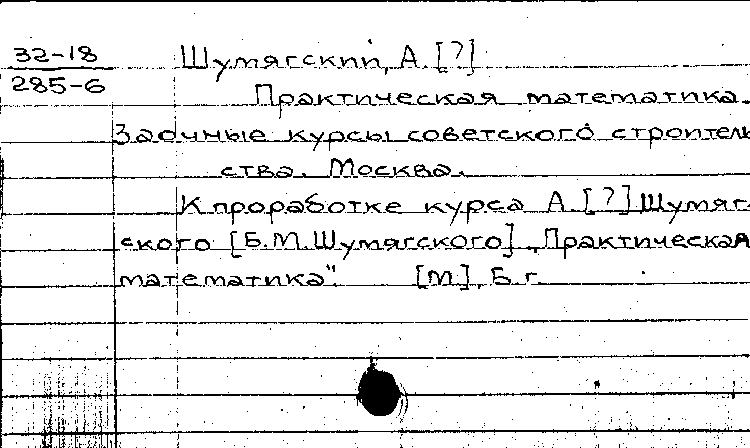 32-18
285-6
Шумягский, А. [?]
Практическая математика.
Заочные курсы советского строитель
ства. Москва.
К проработке курса А. [?] Шумяг-
ского [Б.М. Шумягского] „Практическая
математика". [М], Б. г.